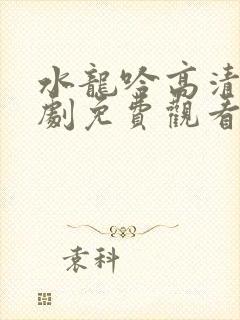 水龍吟高清
劇免費觀看
袁科